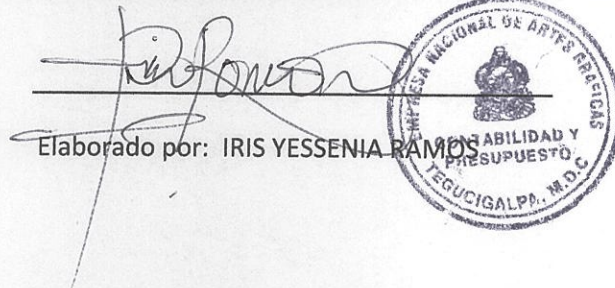 Elaborado por: IRIS YESSENIA RAMOS
EMPRESA NACIONAL DE ARTES GRAFICAS
CONTABILIDAD Y
PRESUPUESTO
TEGUCIGALPA, M.D.C